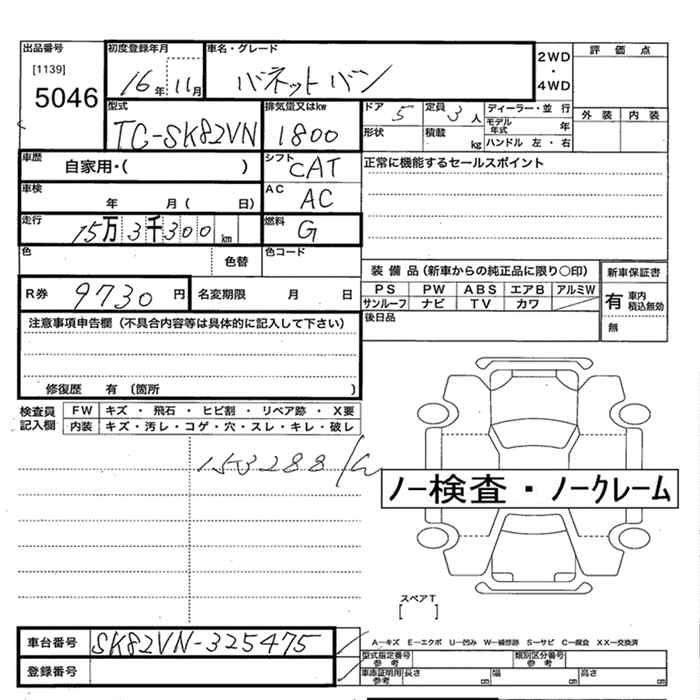 出品番号 初度登録年月 車名・グレード 2WD・4WD 評価点
[1139]
5046 16年11月 バネットバン
型式 排気量又はkw ドア 5 定員 3人 ディーラー・並行 外装 内装
TC-SK82VN 1800 形状 積載 kg モデル年式 年
ハンドル 左・右
車歴 自家用・( ) シフト CAT 正常に機能するセールスポイント
車検 年 月( 日) AC AC
走行 15万3千300km 燃料 G
色 色替 色コード
装備品(新車からの純正品に限り○印) 新車保証書
R券 9730円 名変期限 月 日 PS PW ABS エアB アルミW 有 車内積込無効
サンルーフ ナビ TV カワ
注意事項申告欄(不具合内容等は具体的に記入して下さい) 後日品 無
修復歴 有 〔箇所 〕
検査員記入欄 FW キズ・飛石・ヒビ割・リペア跡・X要
内装 キズ・汚レ・コゲ・穴・スレ・キレ・破レ
153288
ノー検査・ノークレーム
スペアT
[ ]
車台番号 SK82VN-325475 A―キズ E―エクボ U―凹み W―補修跡 S―サビ C―腐食 XX―交換済
型式指定番号 参考 類別区分番号 参考
登録番号 車庫証明用 参考 長さ cm 幅 cm 高さ cm